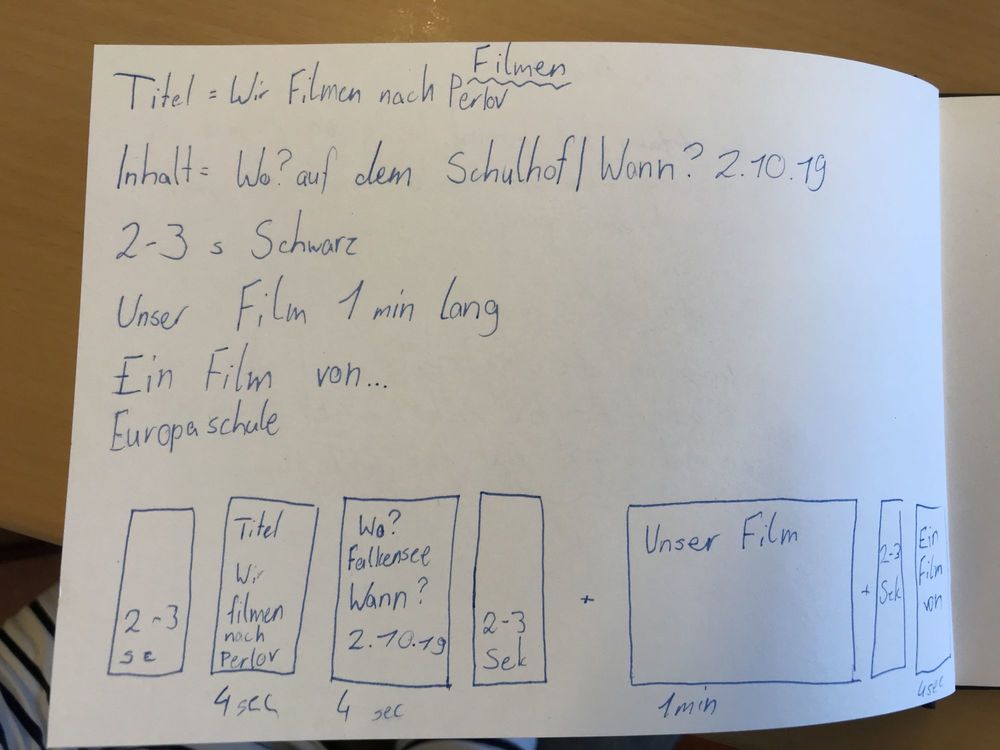 Filmen
Titel = Wir Filmen nach Perlov
Inhalt = Wo? auf dem Schulhof / Wann? 2.10.19
2-3 s Schwarz
Unser Film 1 min lang
Ein Film von...
Europaschule
2-3
se
Titel
Wir
filmen
nach
Perlov
4 sec
Wo?
Falkensee
Wann?
2.10.19
4 sec
2-3
Sek
+
Unser Film
1min
+
2-3
Sek
Ein
Film
von
4sec